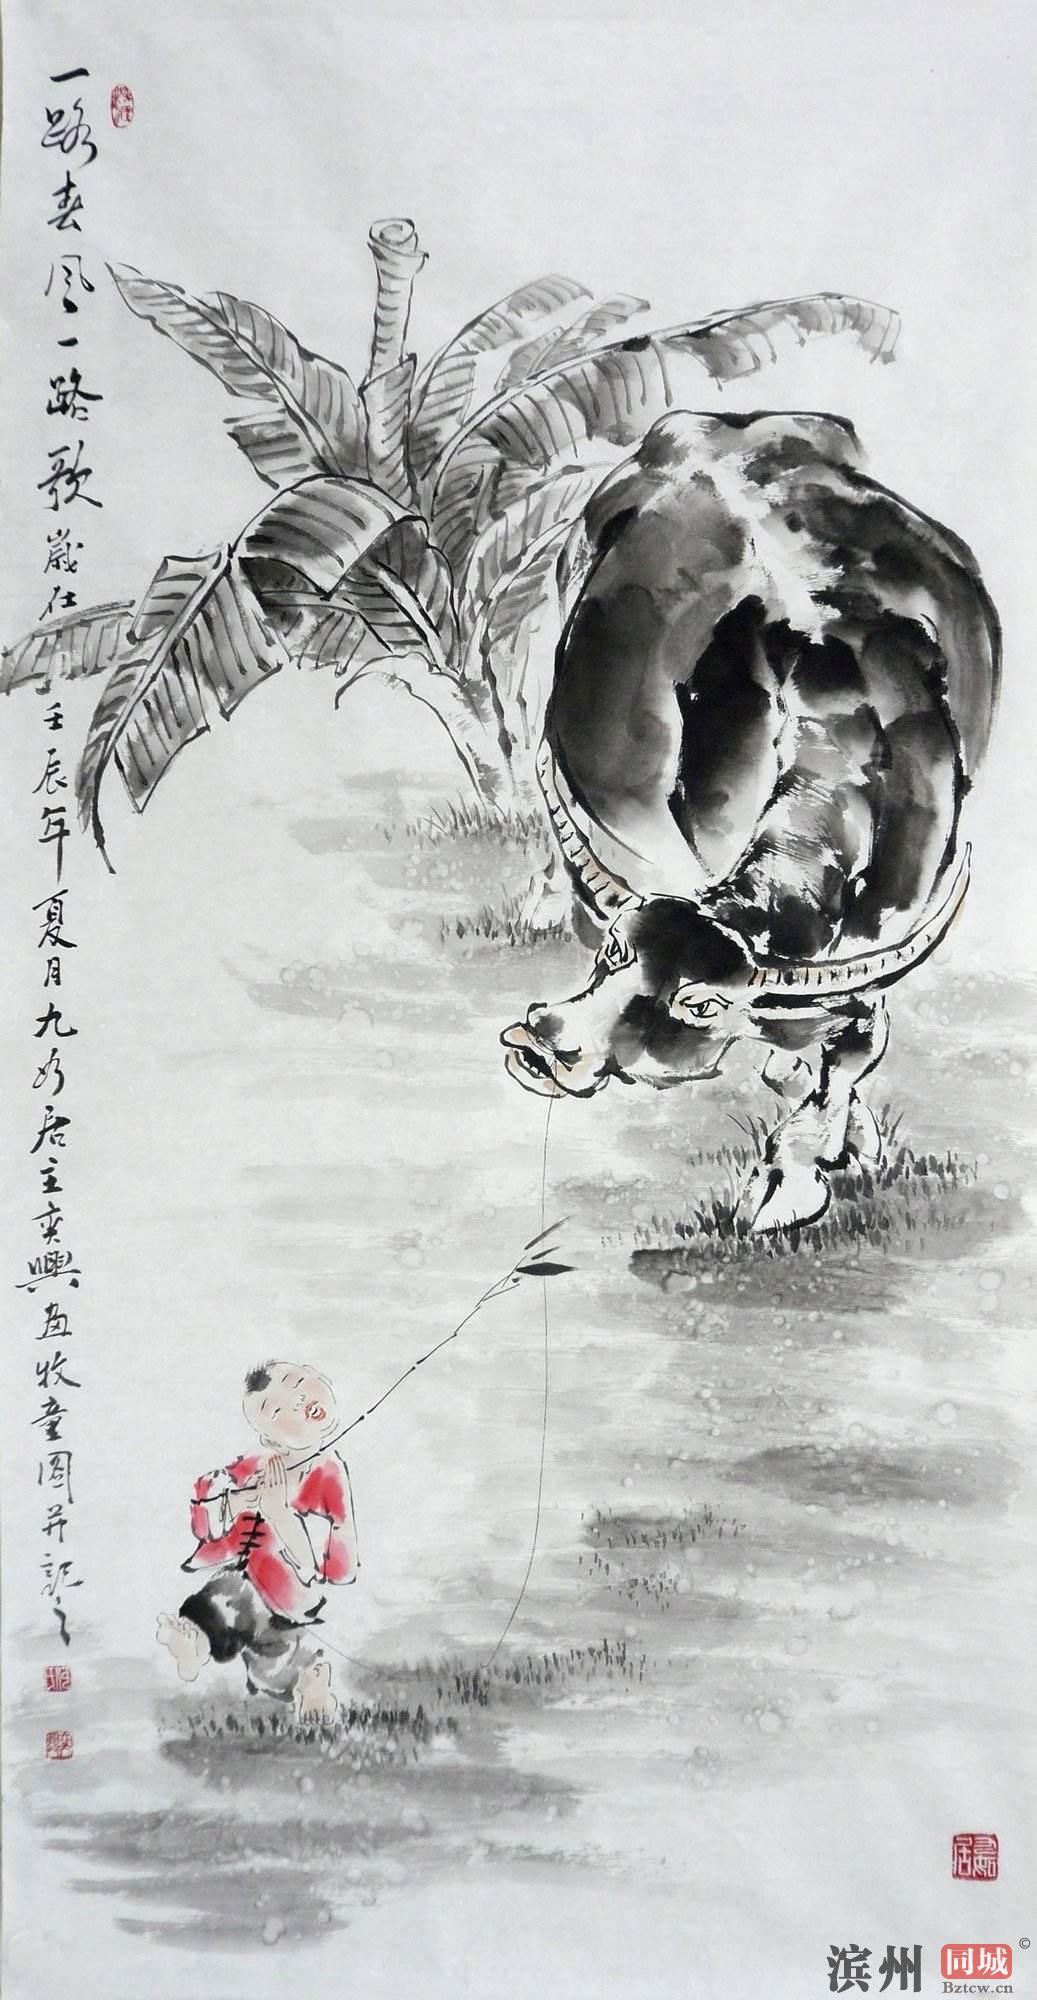 一路春风一路歌 岁在壬辰年夏月九如居主奕兴画牧童图并记之
滨州同城
©
Bztcw.cn